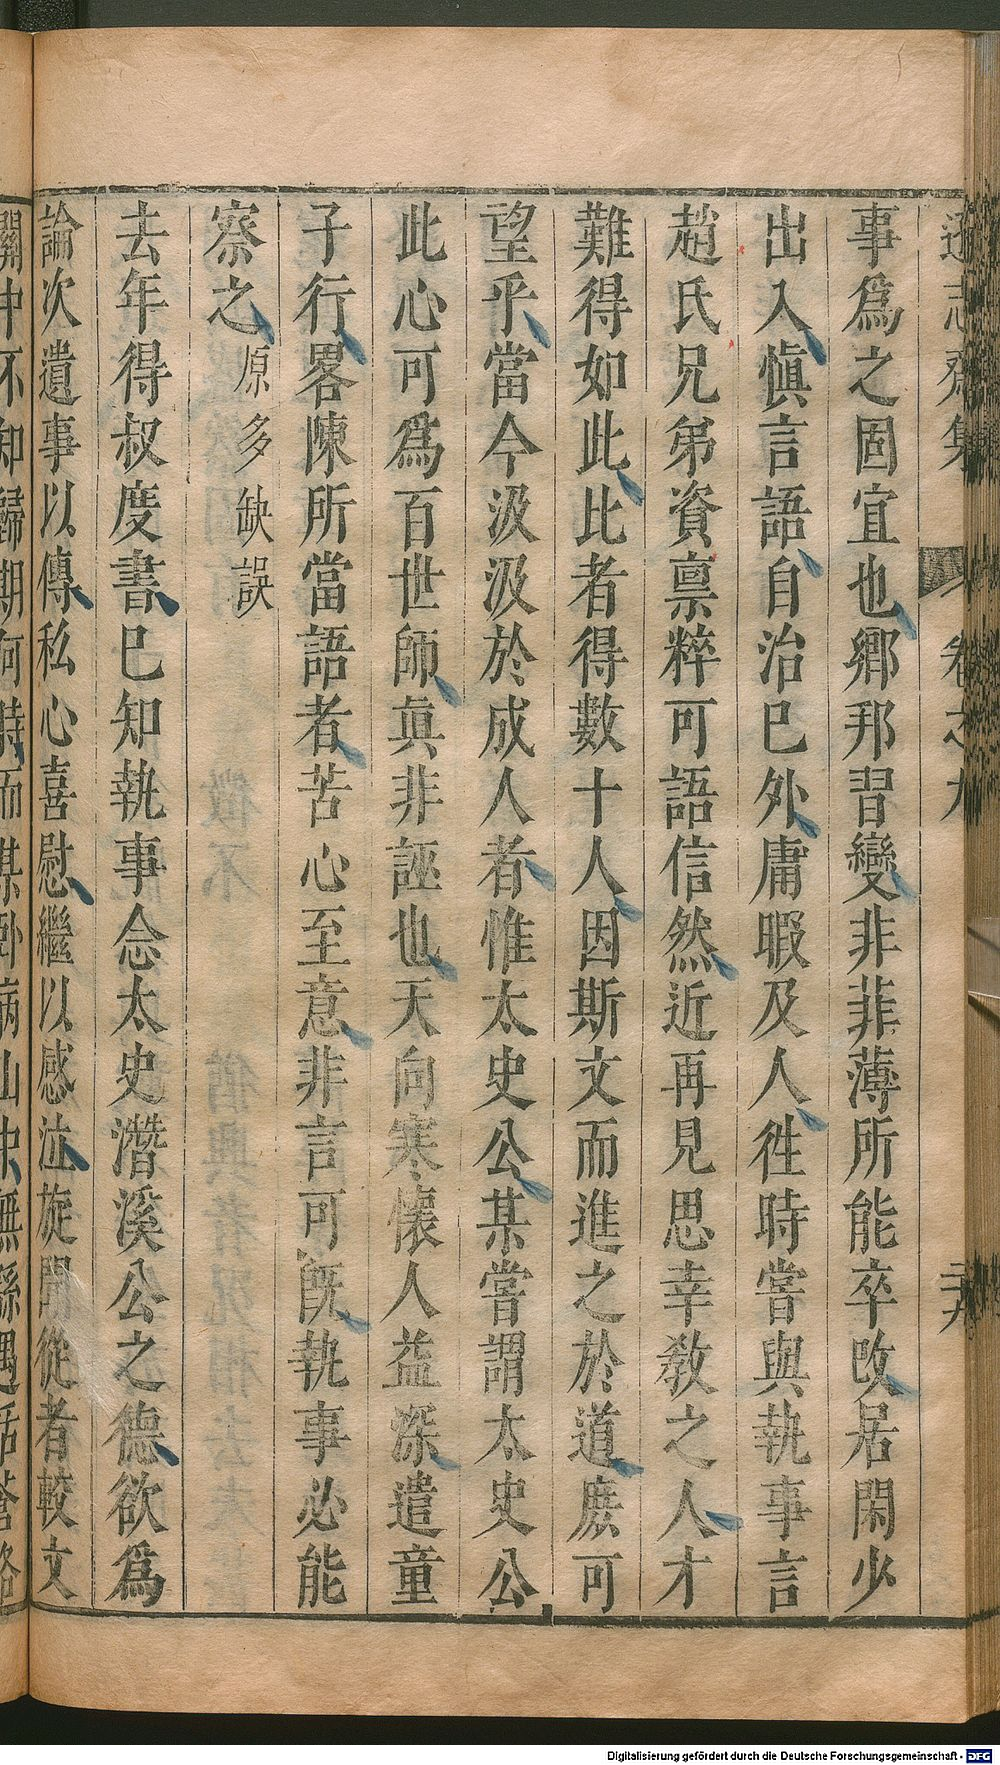 遜志齋集 卷之九
事爲之固宜也鄉邦習變非菲薄所能卒改居閑少
出入愼言語自治巳外庸暇及人徃時嘗與執事言
趙氏兄弟資禀粹可語信然近再見思幸敎之人才
難得如此比者得數十人因斯文而進之於道庶可
望乎當今汲汲於成人者惟太史公某嘗謂太史公
此心可爲百世師眞非誣也天向寒懷人益深遣童
子行畧陳所當語者苦心至意非言可旣執事必能
察之原多缺誤
去年得叔度書巳知執事念太史潛溪公之德欲爲
論次遺事以傳私心喜慰繼以感泣旋聞從者較文
關中不知歸期何時而某卧病山中無繇遇
Digitalisierung gefördert durch die Deutsche Forschungsgemeinschaft - DFG